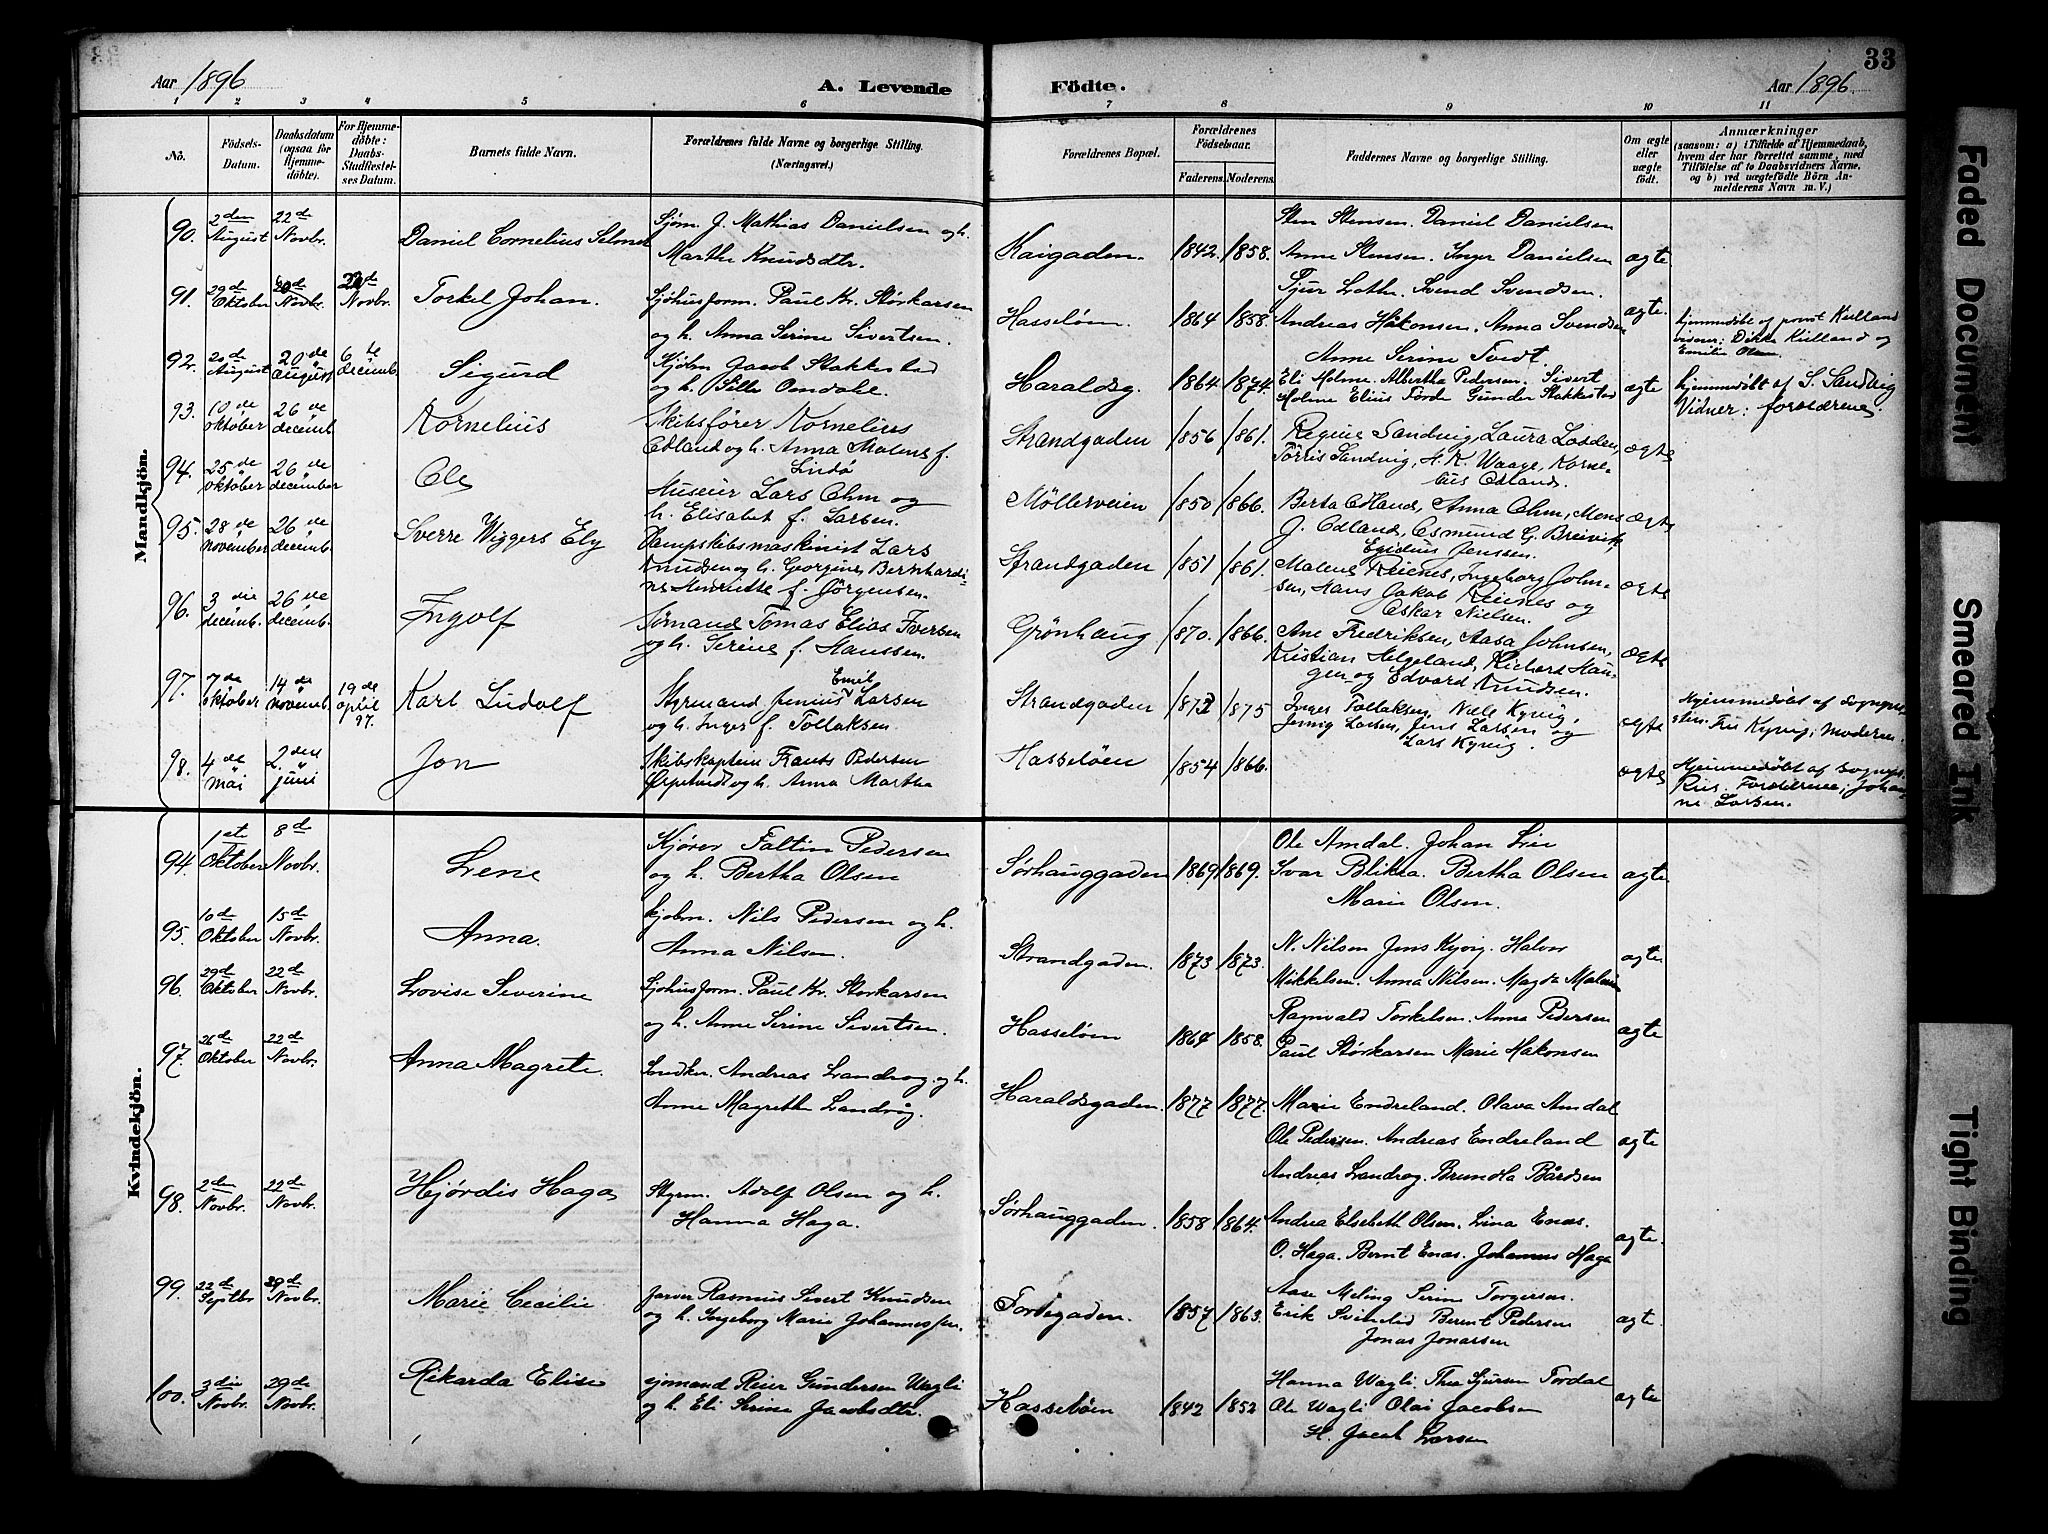 33
Aar 1896
A. Levende Födte.
Aar 1896
1 2 3 4 5 6 7 8 9 10 11
No.
Födsels-
Datum.
Daabsdatum
(ogsaa for
Hjemme-
döbte).
For Hjemme-
döbte:
Daabs-
Stadfæstel-
ses Datum.
Barnets fulde Navn.
Forældrenes fulde Navne og borgerlige Stilling.
(Næringsvei.)
Forældrenes Bopæl.
Forældrenes
Födselsaar.
Faderens. Moderens.
Faddernes Navne og borgerlige Stilling.
Om ægte
eller
uægte
födt.
Anmærkninger
(saasom: a) i Tilfælde af Hjemmedaab,
hvem der har forrettet samme, med
Tilföielse af to Daabsvidners Navne,
og b) ved uægtefödte Börn An-
melderens Navn m. V.)
Mandkjön.
90. 2den August 22de Novbr. Daniel Cornelius Selmer
Sjöm. J. Mathias Danielsen og h.
Marthe Knudsdtr.
Kaigaden. 1842. 1858.
Sten Stensen. Daniel Danielsen
Anne Stensen. Inger Danielsen
ægte.
91. 29de Oktober 20de Novbr. 22de Novbr. Torkel Johan.
Sjöhusform. Paul Kr. Störkarsen
og h. Anna Serine Sivertsen.
Hasseløen. 1864 1858.
Sjur Loth. Svend Svendsen.
Andreas Håkonsen. Anna Svendsen
Anne Serine Tvedt.
ægte.
hjemmedøbt af provst Kielland
vidner: Dikka Kielland og
Emilie Olsen
92. 20de August 20de august 6te decemb. Sigurd
Kjøbm. Jacob Stakkestad
og h. Sille Omdale.
Haraldsg. 1864 1874.
Eli Holme. Albertha Pedersen. Sivert
Holme Elius Förde Gunder Stakkestad
ægte
hjemmedöbt af S. Sandvig
Vidner: forældrene.
93. 10de oktober 26de decemb. Kornelius
Skibsförer Kornelius
Odland og h. Anna Malene f.
Lindö
Strandgaden 1856 1861.
Regine Sandvig, Laura Lodden,
Törris Sandvig, H. K. Waage, Korne-
lius Odland.
ægte
94. 25de oktober 26de december Ole
Huseier Lars Ohm og
h. Elisabet f. Larsen.
Möllerveien 1850 1866.
Berta Odland, Anna Ohm, Mons
J. Odland, Osmund G. Breivik,
Egidius Jenssen.
ægte
95. 28de november 26de decemb. Sverre Wiggers Ely
Dampskibsmaskinist Lars
Knudsen og h. Georgine Bernhardi-
ne Henriette f. Jörgensen.
Strandgaden 1851 1861.
Malene Reienes, Ingeborg John-
sen, Hans Jakob Reienes og
Oskar Nielsen.
ægte
96. 3die decemb. 26de decemb. Ingolf
Sømand Tomas Elias Iversen
og h. Serine f. Hanssen.
Grönhaug 1870. 1866.
Ane Fredriksen, Aasa Johnsen,
Kristian Helgeland, Richard Hau-
gen og Edvard Knudsen.
ægte
97. 7de oktober 14de novemb. 19de april 97. Karl Ludolf
Styrmand Jenius Emil Larsen
og h. Inger f. Tollaksen.
Strandgaden 1872 1875
Inger Tollaksen, Nelle Kyvig,
Jenny Larsen, Jens Larsen og
Lars Kyvig.
ægte
Hjemmedöbt af sognepre-
sten. Fru Kyvig, Moderen.
98. 4de mai 2den juni Jon
Skibskaptein Frants Pedersen
og h. Anna Martha
Hasselöen 1854 1866.
ægte
Hjemmedöbt af sognepr.
Rus. Forældrene, Johan-
ne Larsen.
Kvindekjön.
94. 1ste Oktober 8de Novbr. Lene
Kjører Faltin Pedersen
og h. Bertha Olsen
Sørhauggaden 1869 1869.
Ole Amdal. Johan Lie
Ivar Blikra. Bertha Olsen
Marie Olsen.
ægte
95. 10de Oktober 15de Novbr. Anna.
kjøbm. Nils Pedersen og h.
Anna Nilsen.
Strandgaden. 1873 1873.
N. Nilsen Jens Kyvig. Halvor
Mikkelsen. Anna Nilsen. Magda Malene
ægte
96. 29de Oktober 22de Novbr. Lovise Severine
Sjöhusform. Paul Kr. Storkarsen
og h. Anne Serine Sivertsen.
Hasseløen 1864 1858.
Ragnvald Torkelsen. Anna Pedersen
Paul Störkarsen Marie Hakonsen
ægte
97. 26de Oktober 22de Novbr. Anna Magrete.
Snedker. Andreas Landvog og h.
Anne Magrethe Landvåg.
Haraldsgaden. 1877 1877.
Marie Endreland. Olava Amdal
Ole Pedersen. Andreas Endreland
Andreas Landvog. Brundla Bårdsen
ægte
98. 2den Novbr. 22de Novbr. Hjørdis Haga
Styrm. Adolf Olsen og h.
Hanna Haga.
Sørhauggaden. 1858 1864.
Andrea Elsebeth Olsen. Lina Enæs.
O. Haga. Bernt Enæs. Johannes Haga
ægte.
99. 22de Septbr 29de Novbr. Marie Cecilie
farver Rasmus Sivert Knudsen
og h. Ingeborg Marie Johannessen.
Torvegaden. 1857 1863.
Aase Meling Serine Torgersen.
Erik Svinelid Bernt Pedersen
Jonas Jonassen
ægte.
100. 3die Novbr. 29de Novbr. Rikarda Elise
sjömand Reier Gundersen Vagli
og h. Eli Serine Jacobsdtr.
Hasseløen 1842 1852
Hanna Vagli. Thea Sjursen Tordal
Ole Vagli Olai Jacobsen
H. Jacob Larsen
ægte
Faded Document
Smeared Ink
Tight Binding